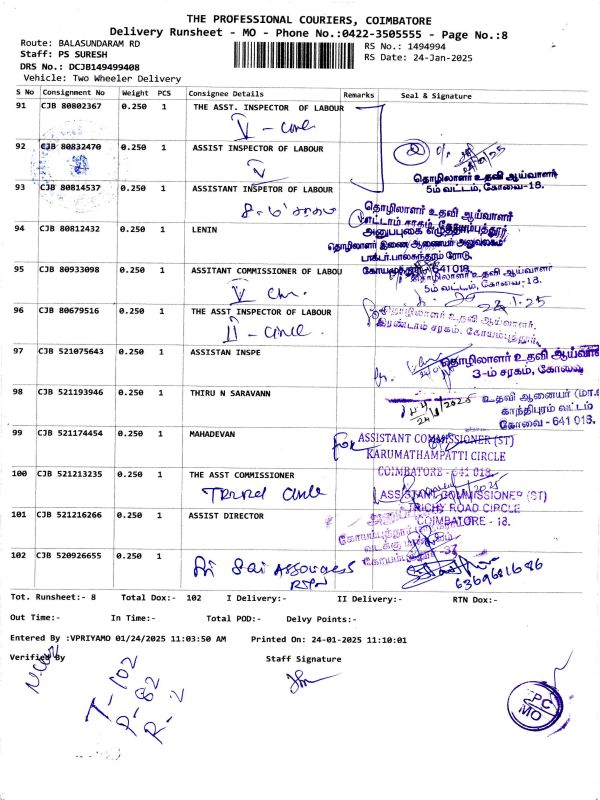 THE PROFESSIONAL COURIERS, COIMBATORE
Delivery Runsheet - MO - Phone No.:0422-3505555 - Page No.:8
Route: BALASUNDARAM RD
RS No.: 1494994
Staff: PS SURESH
RS Date: 24-Jan-2025
DRS No.: DCJB149499408
Vehicle: Two Wheeler Delivery
S No Consignment No Weight PCS Consignee Details Remarks Seal & Signature
91 CJB 80802367 0.250 1 THE ASST. INSPECTOR OF LABOUR
V - circle
92 CJB 80832470 0.250 1 ASSIST INSPECTOR OF LABOUR
V
தொழிலாளர் உதவி ஆய்வாளர்
5ம் வட்டம், கோவை-18.
93 CJB 80814537 0.250 1 ASSISTANT INSPETOR OF LABOUR
தொழிலாளர் உதவி ஆய்வாளர்
94 CJB 80812432 0.250 1 LENIN
தொழிலாளர் இணை ஆணையர் அலுவலகம்
டாக்டர்.பாலசுந்தரம் ரோடு,
95 CJB 80933098 0.250 1 ASSITANT COMMISSIONER OF LABOU
கோயமுத்தூர் - 641 018.
தொழிலாளர் உதவி ஆய்வாளர்
5ம் வட்டம், கோவை-18.
V
24.1.25
96 CJB 80679516 0.250 1 THE ASST INSPECTOR OF LABOUR
தொழிலாளர் உதவி ஆய்வாளர்,
இரண்டாம் சரகம், கோயம்புத்தூர்.
II - circle.
97 CJB 521075643 0.250 1 ASSISTAN INSPE
தொழிலாளர் உதவி ஆய்வாளர்
3-ம் சரகம், கோவை
98 CJB 521193946 0.250 1 THIRU N SARAVANN
உதவி ஆணையர் (மா.
காந்திபுரம் வட்டம்
24/1/2025
கோவை - 641 018.
99 CJB 521174454 0.250 1 MAHADEVAN
ASSISTANT COMMISSIONER (ST)
KARUMATHAMPATTI CIRCLE
COIMBATORE - 641 018.
100 CJB 521213235 0.250 1 THE ASST COMMISSIONER
Circle
ASSISTANT COMMISSIONER (ST)
TRICHY ROAD CIRCLE
COIMBATORE - 18.
101 CJB 521216266 0.250 1 ASSIST DIRECTOR
102 CJB 520926655 0.250 1
Sri Sai Associates
RTPN
6369681686
Tot. Runsheet:- 8 Total Dox:- 102 I Delivery:- II Delivery:- RTN Dox:-
Out Time:- In Time:- Total POD:- Delvy Points:-
Entered By :VPRIYAMO 01/24/2025 11:03:50 AM Printed On: 24-01-2025 11:10:01
Verified By Staff Signature
T-102
P-82
R-2
TPC
MO